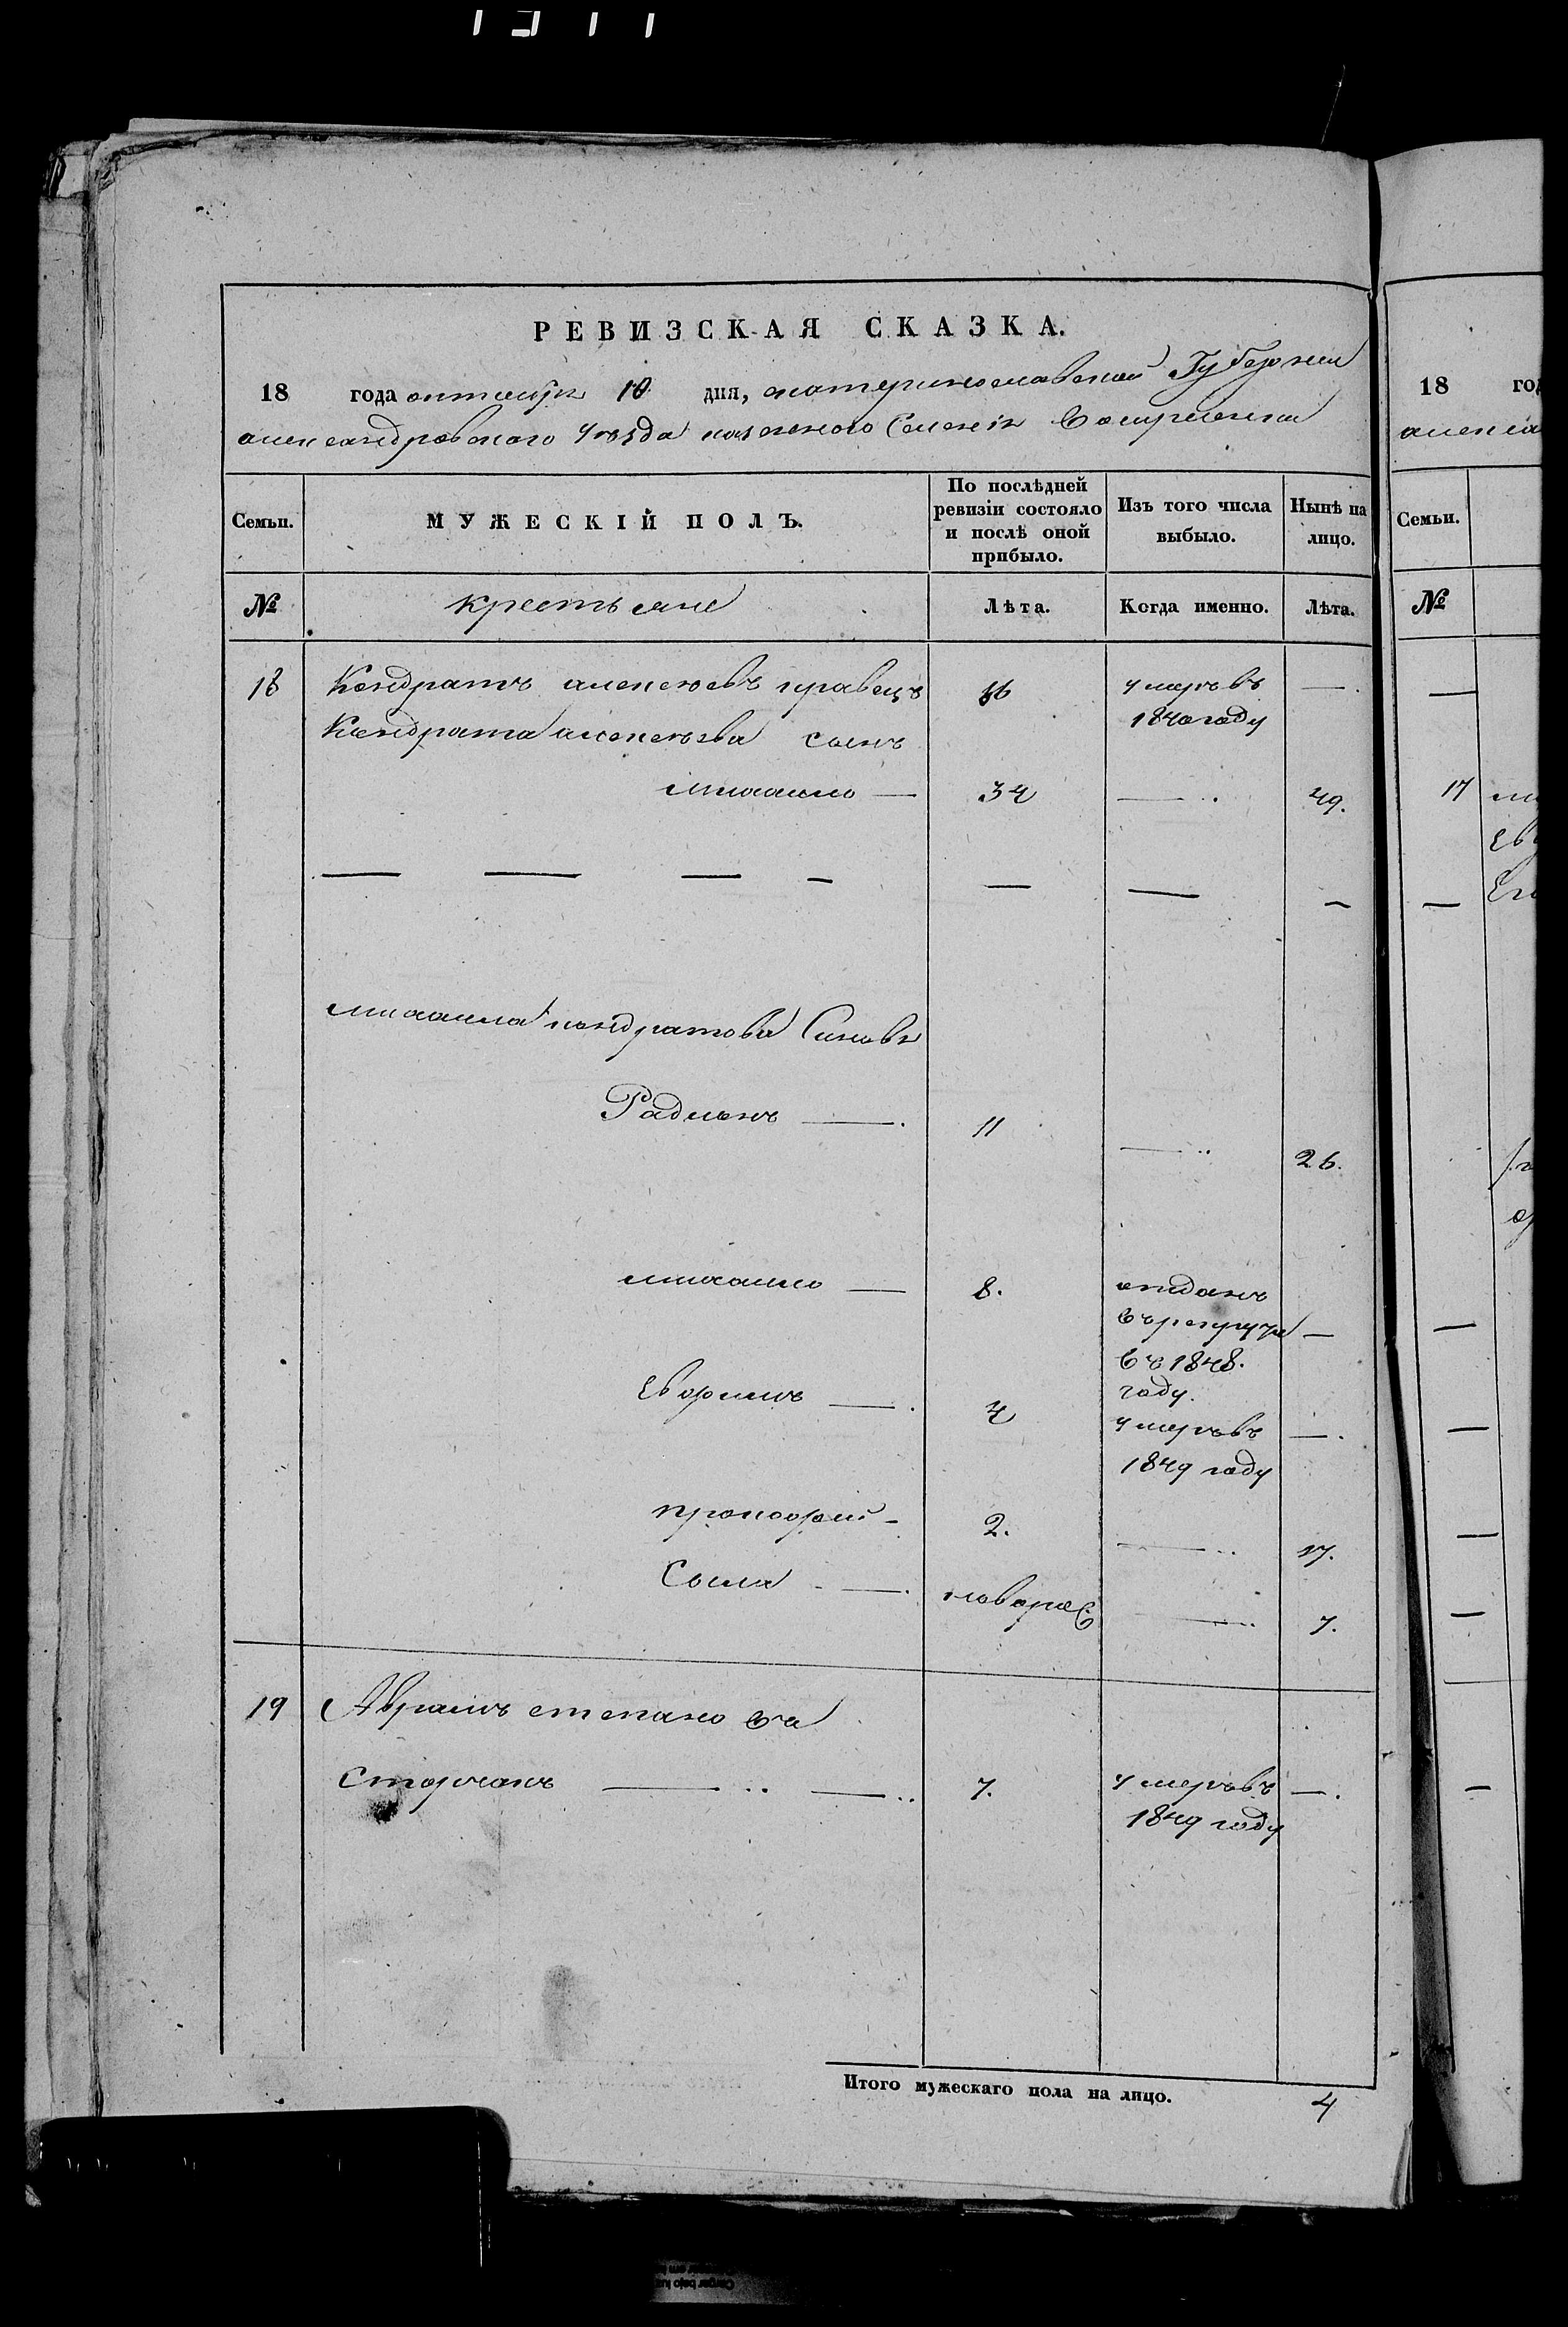 РЕВИЗСКАЯ СКАЗКА.
18 года октября 10 дня, екатеринославской Губернии
александровского уезда казенного Селенія
Семьи. МУЖЕСКІЙ ПОЛЪ. По послѣдней ревизіи состояло и послѣ оной прибыло. Изъ того числа выбыло. Нынѣ на лицо.
№ крестьяне Лѣта. Когда именно. Лѣта.
18 Кондратъ алексеевъ кравецъ умеръ въ —.
Кондрата алексеева сынъ 1840 году
михаило — 34 —.. 49.
— — — — — — —
михаила кондратова Синовя
Радионъ —. 11 —.. 26.
михаило — 8. отдатъ
въ рекруты —
въ 1848.
году.
Евфимъ —. 4 умеръ въ —.
1849 году
прокофий - 2. —.. 17.
Сыла - —. новорож —.. 7.
19 Аврамъ степановъ
Сторчакъ —.. —.. 7. умеръ въ —.
1849 году
Итого мужескаго пола на лицо. 4
18 год
алекса
Семьи.
№
—
17
Ев
— Ег
—
—
—
—
—